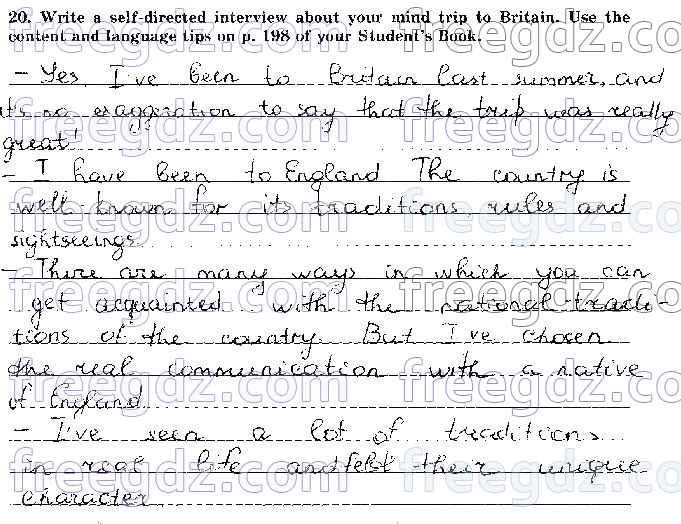 20. Write a self-directed interview about your mind trip to Britain. Use the
content and language tips on p. 198 of your Student's Book.
– Yes, I've been to Britain last summer, and
it's no exaggeration to say that the trip was really
great!
– I have been to England The country is
well-known for its traditions, rules and
sightseeings.
– There are many ways in which you can
get acquainted with the national tradi-
tions of the country. But I've chosen
the real communication with a native
of England.
– I've seen a lot of traditions
in real life and felt their unique
character